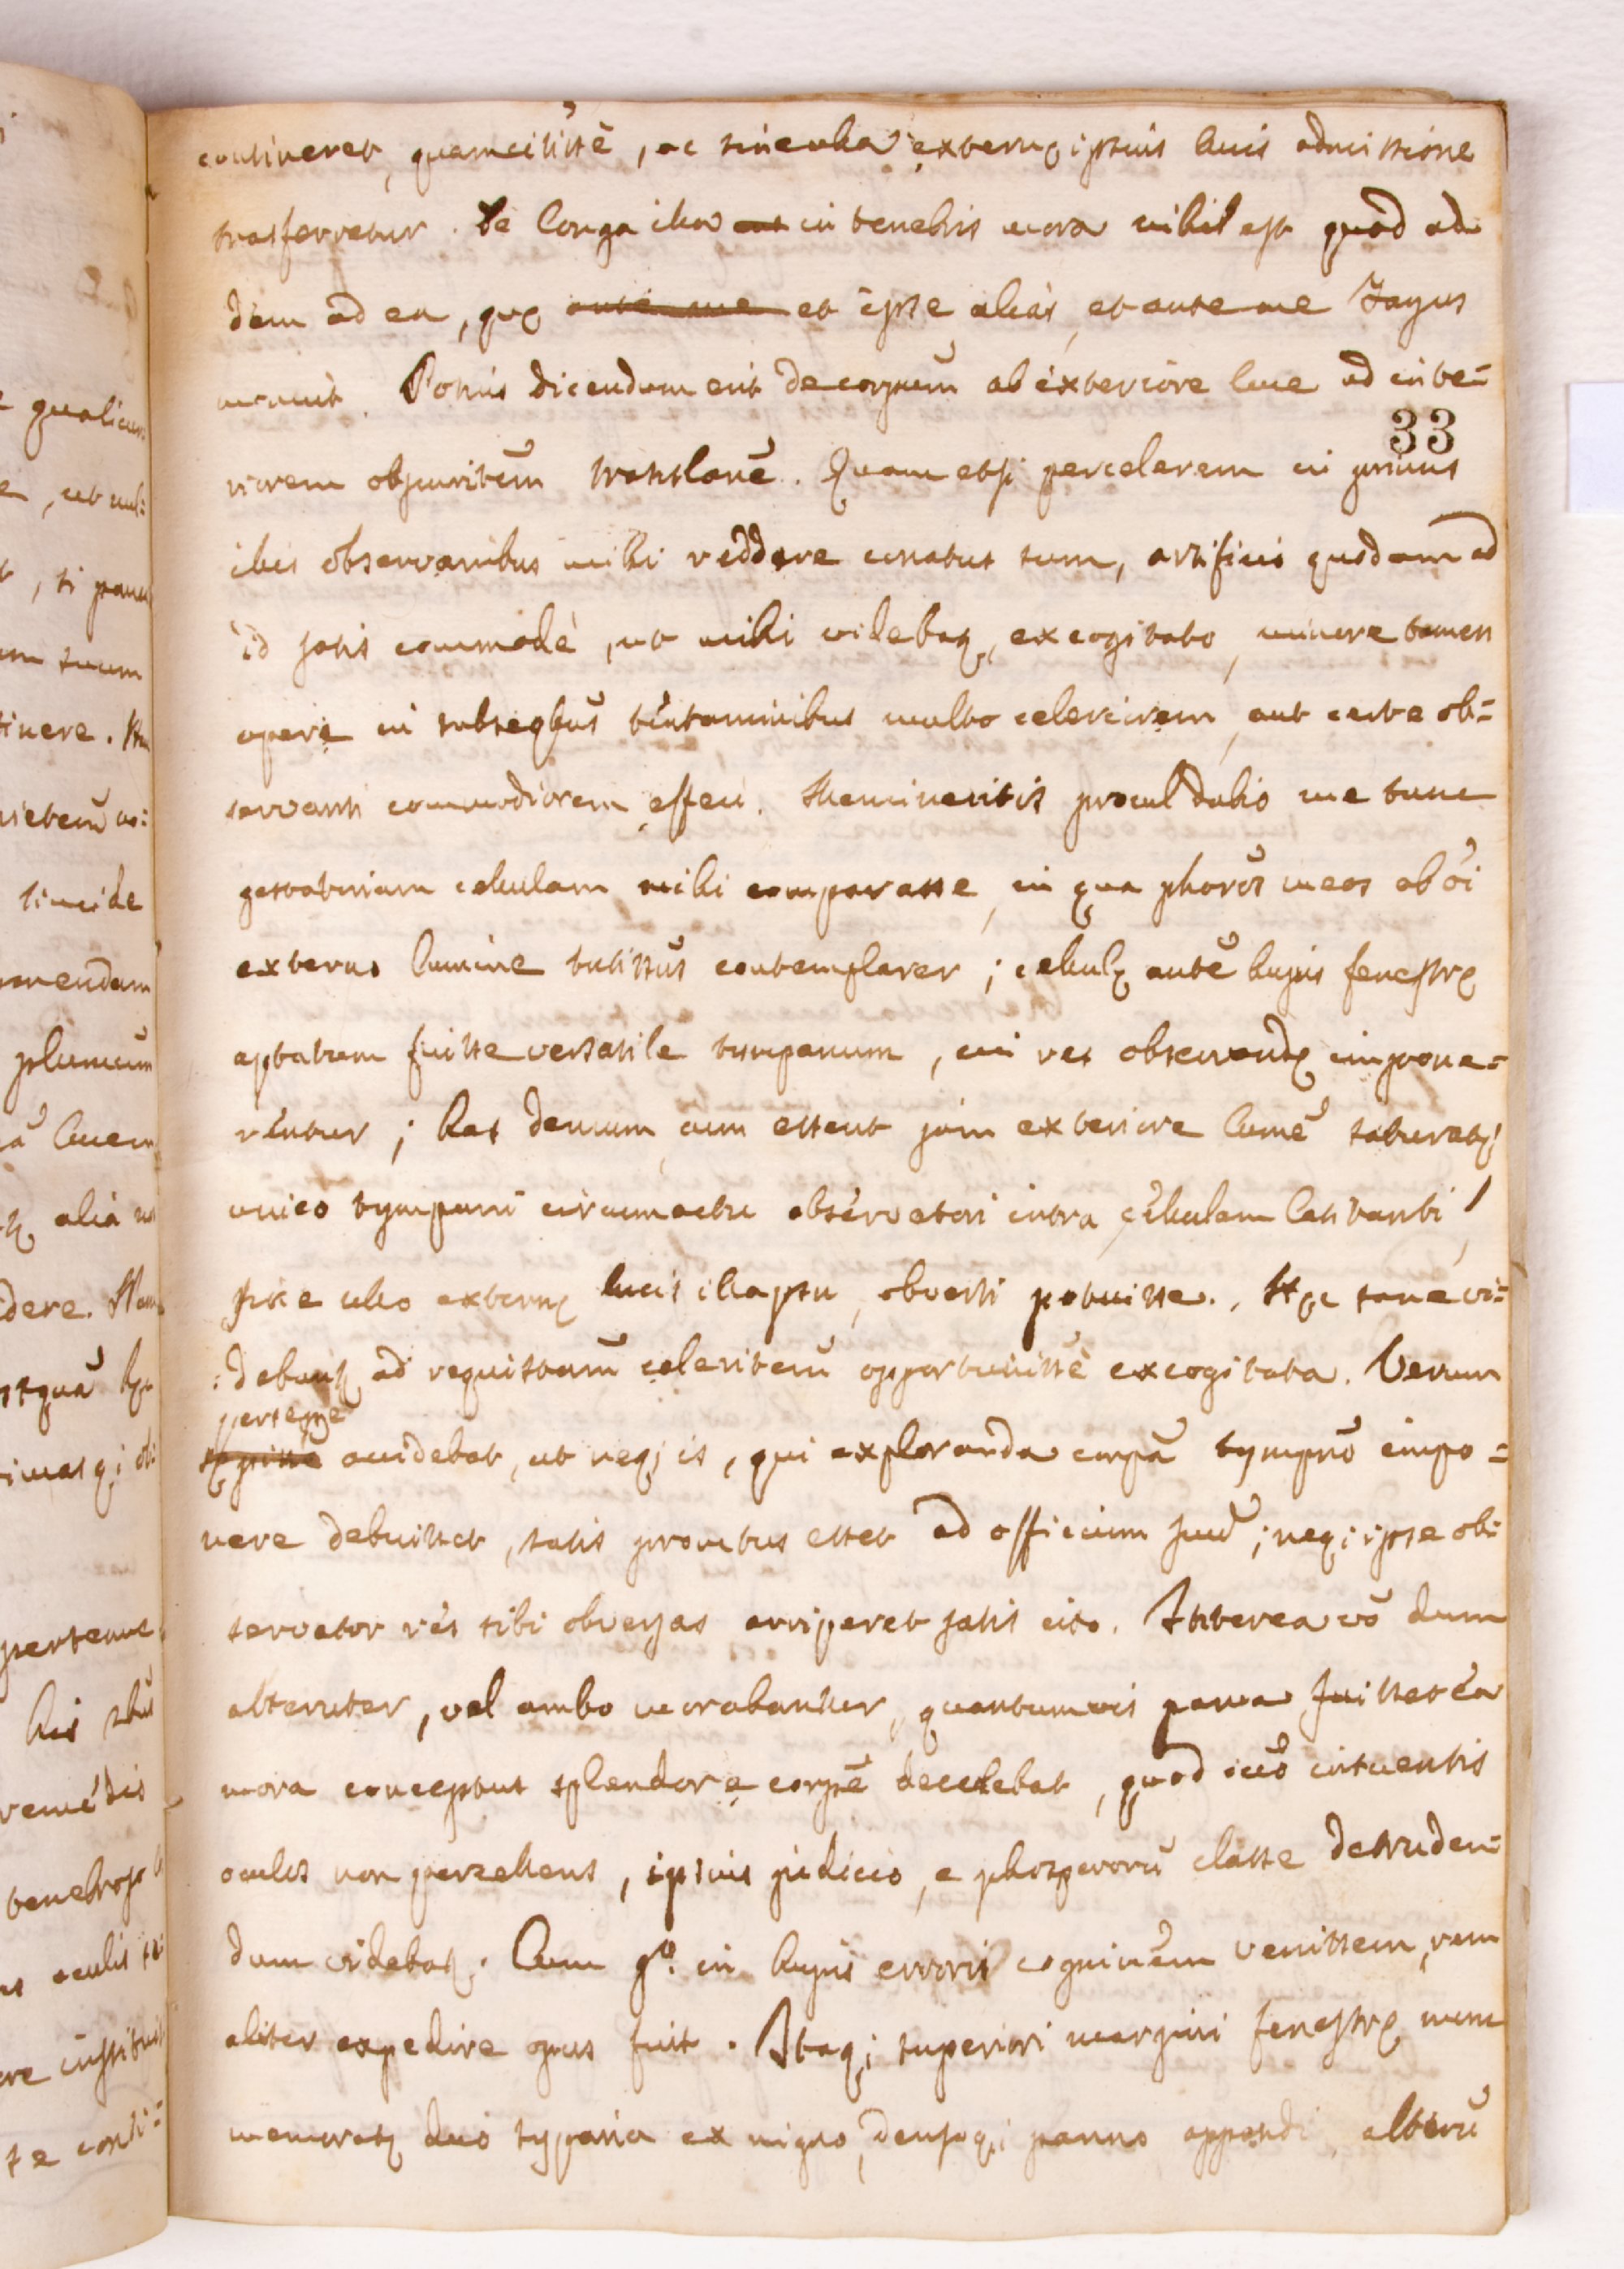 contineret, quamcitissē, ac sine ulla externę ipsius lucis admissione
trasferretur. De longa illa in tenebris mora nihil est quod ad
dam ad ea, quę ante me et ipse aliàs, et ante me Zagus
monuit. Potius dicendum erit de corporum ab exteriore luce ad inte=
33
riorem obscuritēm translaōne. Quam etsi percelerem in primis
illis observaōnibus mihi reddere conatus sum, artificio quodam ad
id satis commodè, ut mihi videbaꝶ, excogitato, minore tamen
opere in subseqbus tentaminibus multo celeriorem, aut certe ob=
servanti commodiorem effeci. Memineritis procul dubio me tunc
gestatoriam cellulam mihi comparasse, in qua phoros meos ab oi
externo lumine tutissimus contemplarer; cellulę autē hujus fenestrę
aptatum fuisse versatile tympanum, cui res observandę impone=
rentur; has demum, cum essent jam exteriore lumē saturatę,
unico tympani circumactu observatori intra cellulam latitanti,
sine ullo externę lucis illapsu, obverti potuisse. Hęc sane vi=
:debantꝶ ad requisitam celeritēm opportunissē excogitata. Verum
persepe
sępissē accidebat, ut neq; is, qui exploranda corpā tympno impo=
nere debuisset, satis promtus esset ad officium suū; neq; ipse ob:
servator res sibi obversas arriperet satis cito. Interea vō dum
alteruter, vel ambo morabantur, quantumvis parva fuisset ea
mora conceptus splendor e corpē decedebat, quod icō intuentis
oculos non percellens, ipsius judicio, e phosphororū classe detruden=
dum videbaꝶ. Cum gº. in hujus erroris cogninēm venissem, rem
aliter expedire opus fuit. Itaq; superiori margini fenestrę nunc
memoratę duo siparia ex nigro, densoq; panno appendi, alterū